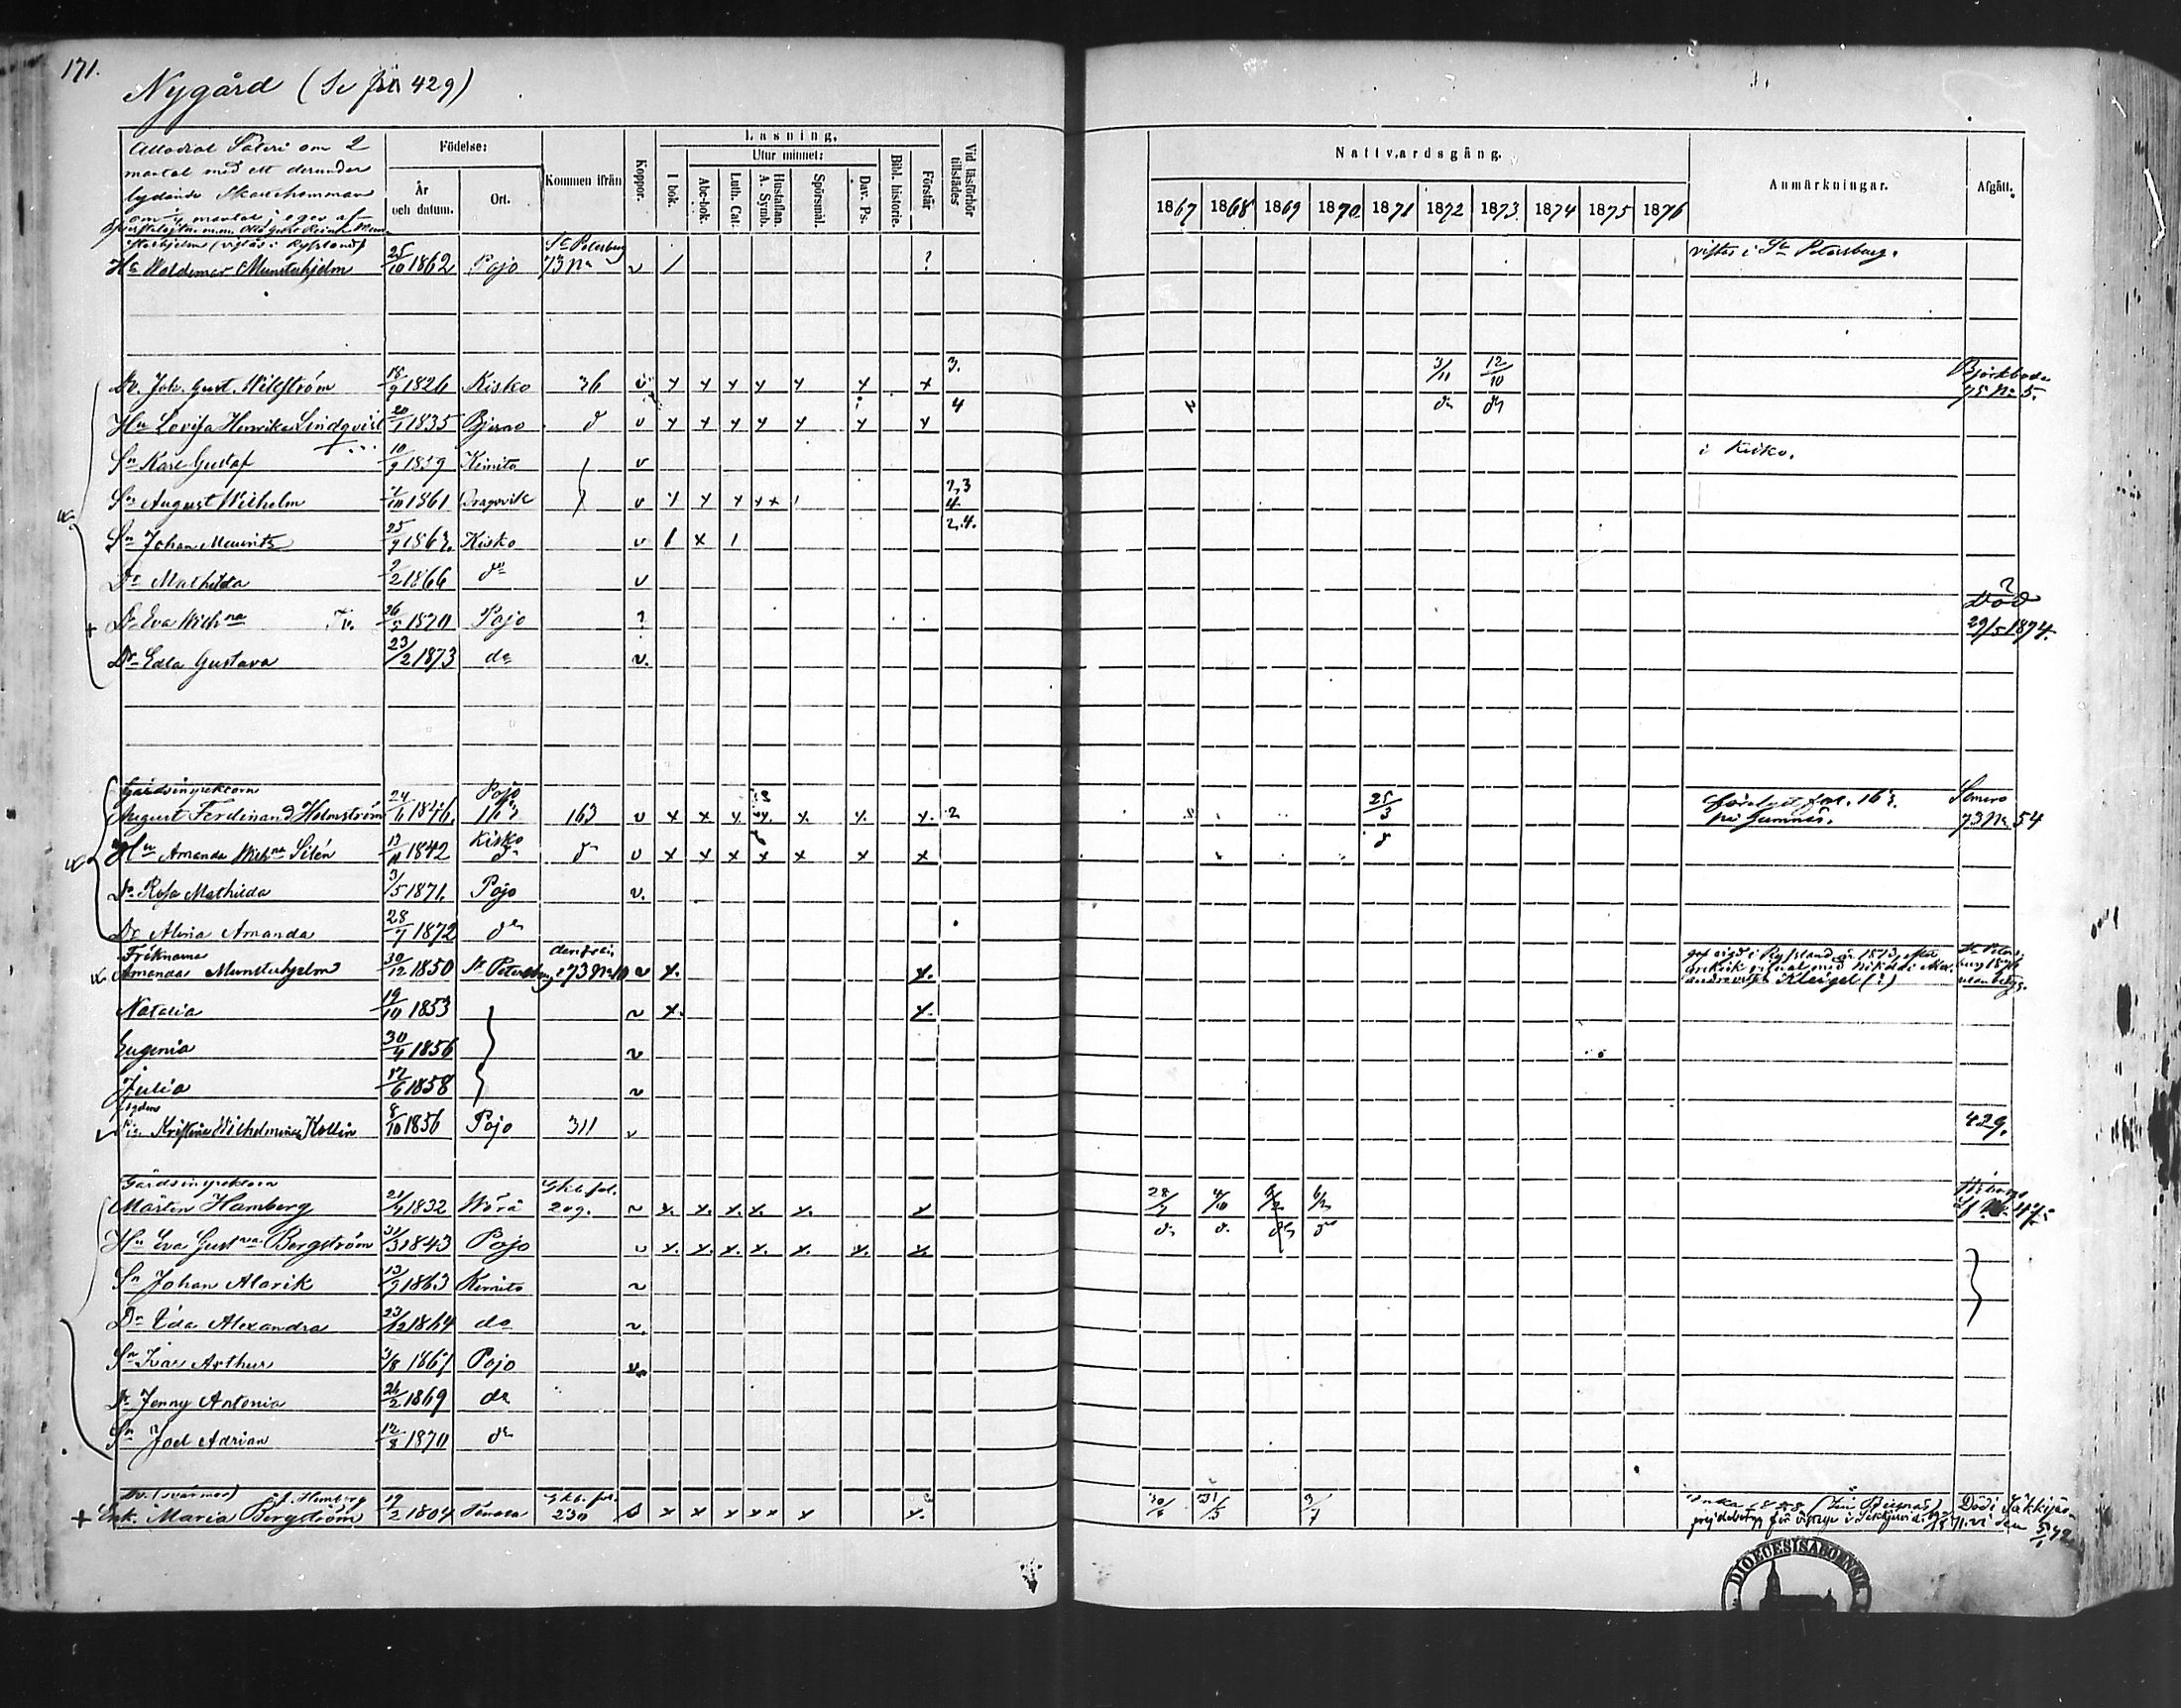 171.
Nygård (Se 429)
Allodial Säteri om 2
mantal med ett derunder
lydande Skattehemman
om mantal; eges af
(vistas i Ryssland)
Födelse:
År och datum.
Ort.
Kommen ifrån
Koppor.
Läsning.
I bok.
Utur minnet:
Abc-bok.
Luth. Cat.
Hustaflan. A. Symb.
Spörsmål.
Dav. Ps.
Bibl. historie.
Förstår
Vid läsförhör tillstädes
Nattvardsgång.
1867 1868 1869 1870 1871 1872 1873 1874 1875 1876
Anmärkningar.
Afgått.
Waldemar Munsterhjelm 25/10 1862 Pojo St Petersburg 73 No v / ? vistas i St Petersburg.
Joh. Gust. Wikström 18/9 1826 Kisko 36 v x x x x x x x 3. 3/11 12/10 Björkboda 75 No 5.
Hu Lovisa Henrika Lindqvist 20/1 1835 Bjerno d v x x x x x x x 4 do do
Sn Karl Gustaf 10/9 1859 Kimito v i Kisko.
Sn August Wilhelm 1861 Dragsvik v x x x x x 2,3 4.
Sn Johan Mauritz 25/9 1863. Kisko v / x / 2.4.
Dr Mathilda 2/2 1866 do v
+ Dr Eva Wilhna Tv. 26/5 1870 Pojo ? Död 29/5 1874.
Dr Edla Gustava 23/2 1873 do v.
Gårdsinspektorn
August Ferdinand Holmström 24/6 1846. Pojo 163 v x x x x x x x 2 25/3 fol. 163. på Gumnäs. 73 No 54
Hu Amanda Wilhna Silén 13/11 1842 Kisko do v x x x x x x x d
Dr Rosa Mathilda 3/5 1871. Pojo v.
Dr Alma Amanda 28/7 1872 do
Fröknarna
Amanda Munsterhjelm 30/12 1850 St Petersburg 73 No 10 v x. x. vigd i Ryssland år 1873, efter
grekisk ritual med Nikolai Alexandrovitsch Kleigel (?)
Natalia 19/10 1853 v x. x.
Eugenia 30/4 1856 v
Julia 17/6 1858 v
Pig. Kristina Wilhelmina Kollin 8/10 1856 Pojo 311 v 429.
Gårdsinspektorn
Mårten Hamberg 21/4 1832 Wörå 209. v x. x. x. x. x. x 28/7 4/10 6/2 6/2
Hu Eva Gustva Bergström 31/3 1843 Pojo v x. x. x. x. x. x. x. do d. do do
Sn Johan Alarik 13/9 1863 Kimito v
Dr Ida Alexandra 23/12 1864 do v.
Sn Ivar Arthur 3/8 1867 Pojo v.
Dr Jenny Antonia 26/2 1869 do
Sn Joel Adrian 12/8 1870 do
(svärmor) t. Hamberg
+ Enk. Maria Bergström 19/2 1804 Tenala 230 x x x x x x x. 30/6 31/5 3/7 Död i Säkkijärvi den 5/1 72
DIOECESIS ABOENSIS